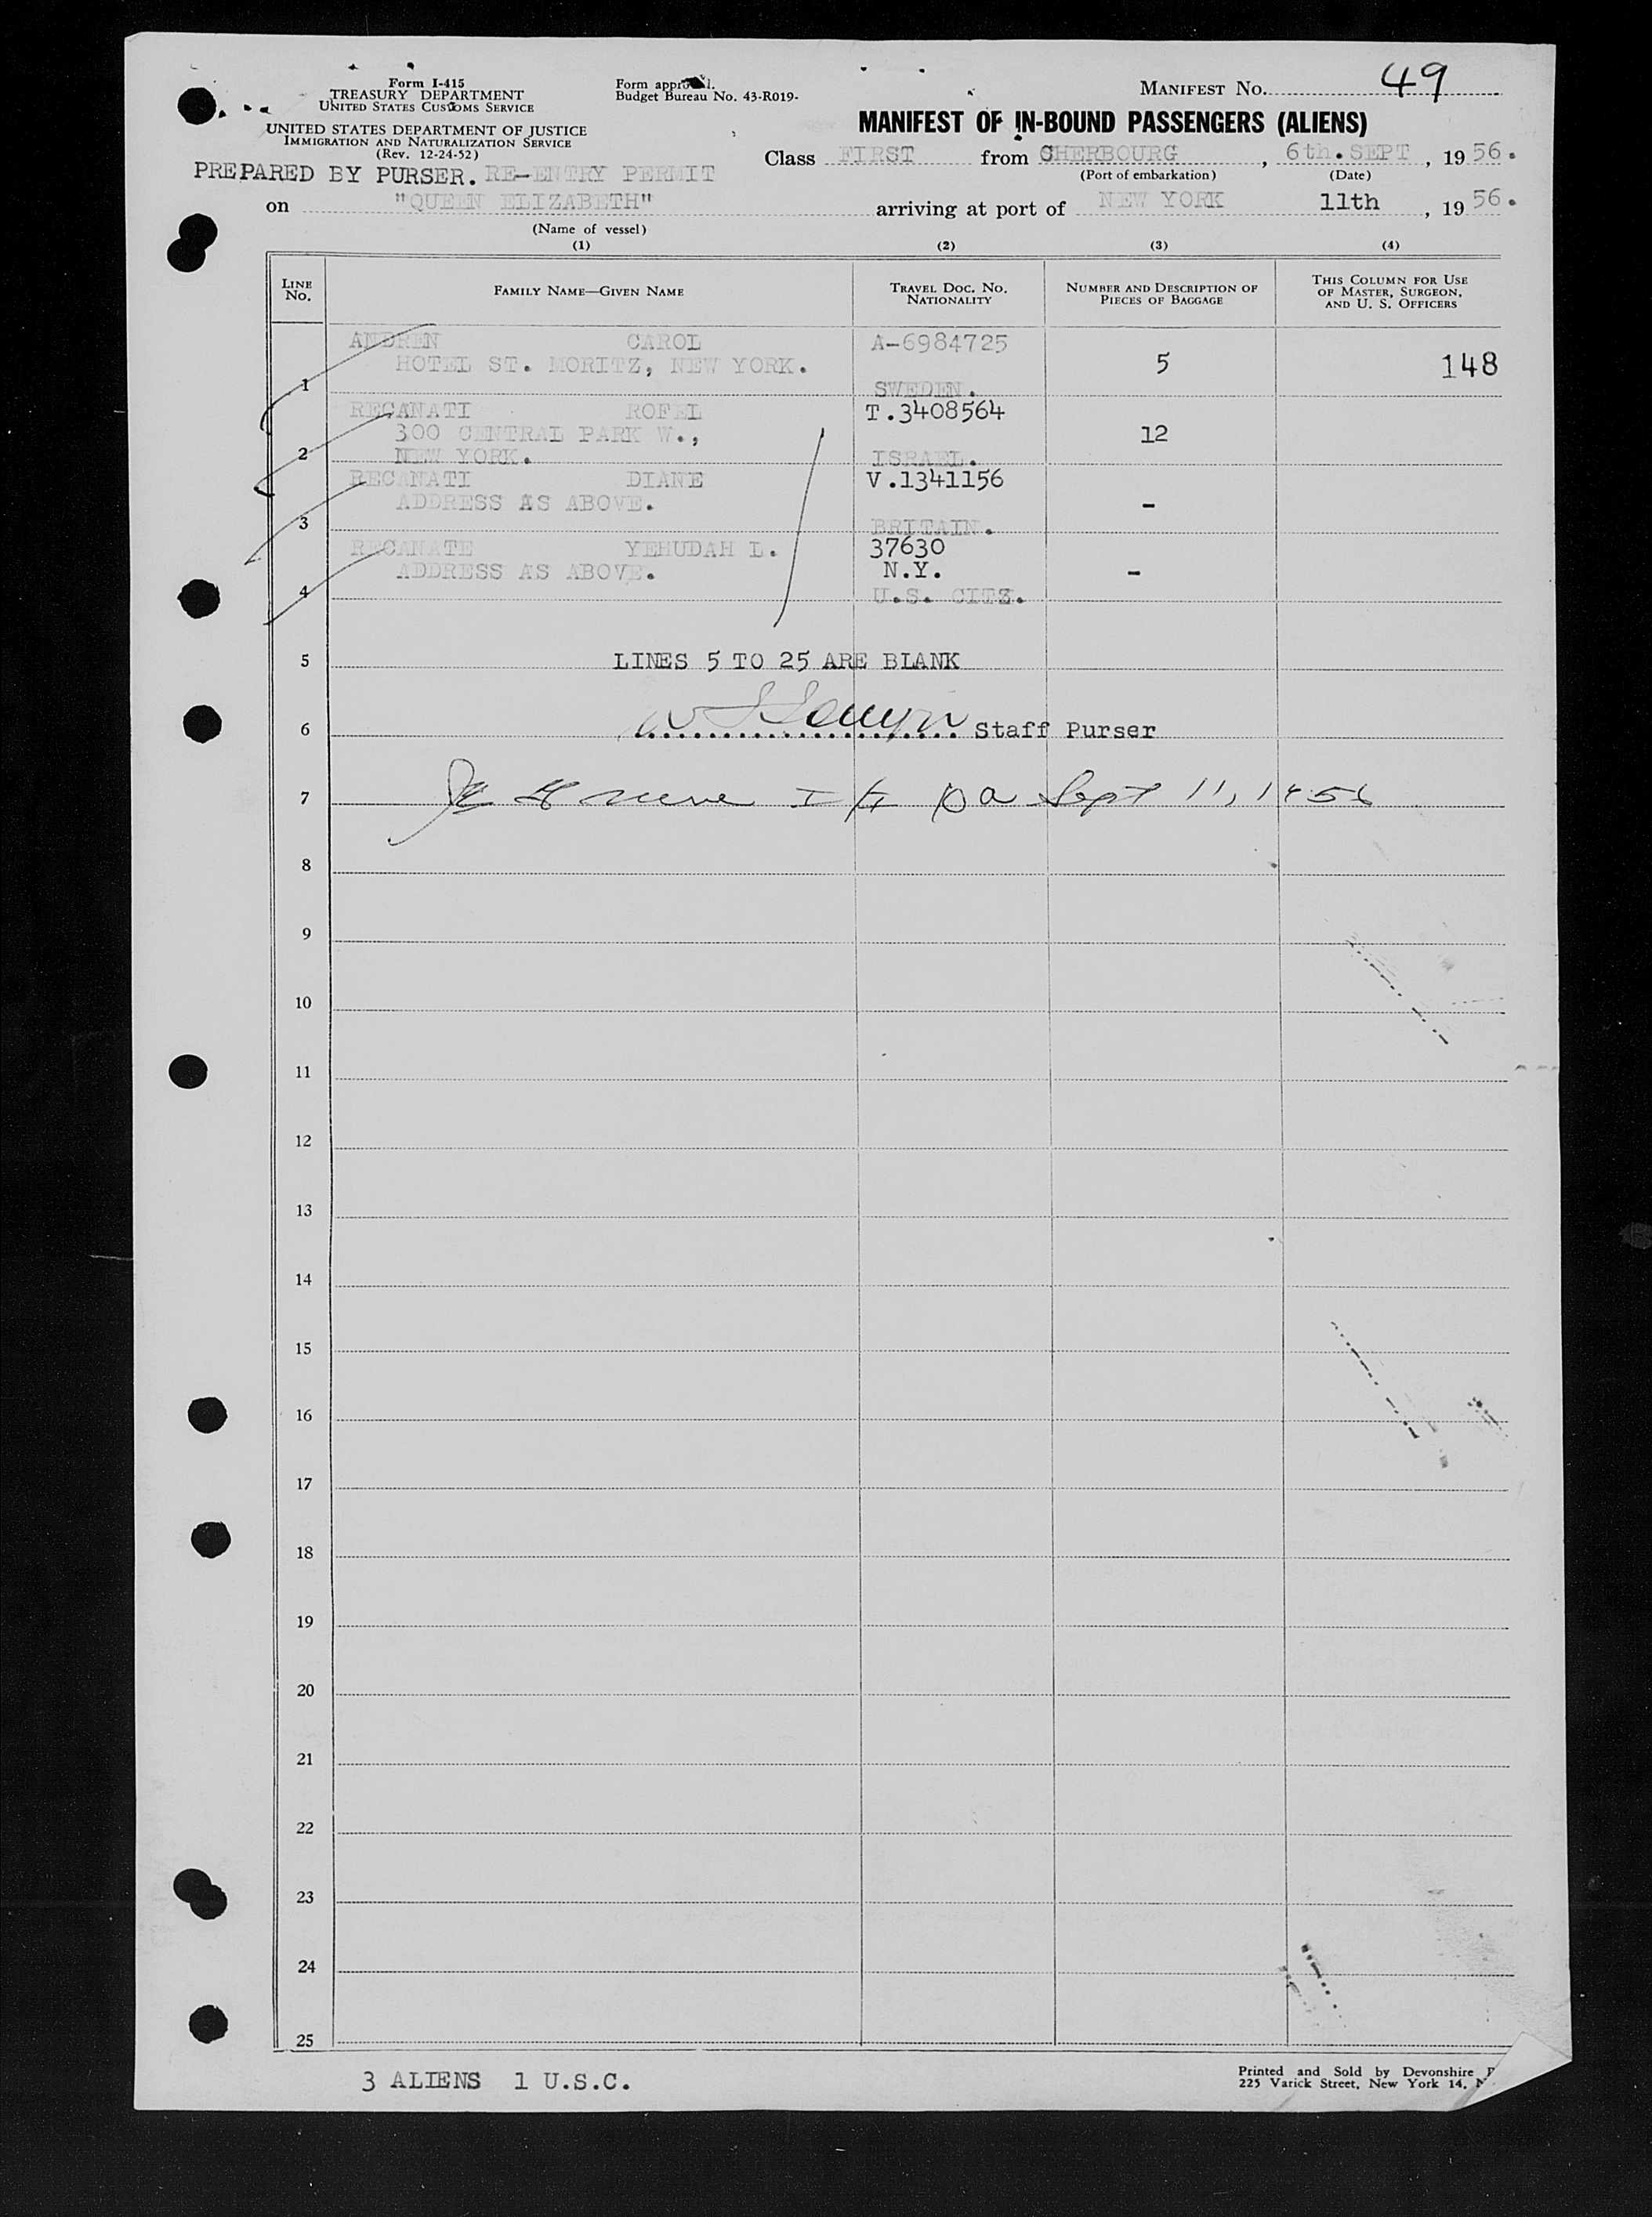 Form I-415
TREASURY DEPARTMENT
UNITED STATES CUSTOMS SERVICE
UNITED STATES DEPARTMENT OF JUSTICE
IMMIGRATION AND NATURALIZATION SERVICE
(Rev. 12-24-52)
Form approved.
Budget Bureau No. 43-R019-
MANIFEST NO. 49
MANIFEST OF IN-BOUND PASSENGERS (ALIENS)
Class FIRST from CHERBOURG, 6th. SEPT, 19 56.
(Port of embarkation) (Date)
PREPARED BY PURSER. RE-ENTRY PERMIT
on "QUEEN ELIZABETH" arriving at port of NEW YORK 11th, 19 56.
(Name of vessel)
(1) (2) (3) (4)
LINE No. FAMILY NAME—GIVEN NAME TRAVEL DOC. NO. NATIONALITY NUMBER AND DESCRIPTION OF PIECES OF BAGGAGE THIS COLUMN FOR USE OF MASTER, SURGEON, AND U. S. OFFICERS
ANDREN CAROL A-6984725
HOTEL ST. MORITZ, NEW YORK. 5 148
1 SWEDEN.
RECANATI ROFEL T.3408564
300 CENTRAL PARK W., 12
2 NEW YORK. ISRAEL.
RECANATI DIANE V.1341156
ADDRESS AS ABOVE. -
3 BRITAIN.
RECANATE YEHUDAH L. 37630
ADDRESS AS ABOVE. N.Y. -
4 U.S. CITZ.
5 LINES 5 TO 25 ARE BLANK
6 Staff Purser
7 Sept 11, 1956
8
9
10
11
12
13
14
15
16
17
18
19
20
21
22
23
24
25
3 ALIENS 1 U.S.C.
Printed and Sold by Devonshire
225 Varick Street, New York 14,